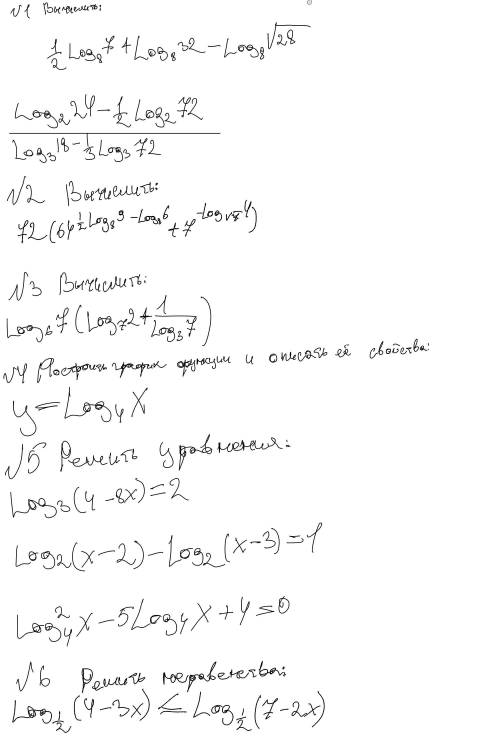 √1 Вычислить:
1/2 Log₈7 + Log₈32 − Log₈√28
Log₂24 − 1/2 Log₂72
Log₃18 − 1/3 Log₃72
√2 Вычислить:
72(64^(1/2 Log₈9 − Log₈6) + 7^(−Log√8 4))
√3 Вычислить:
Log₆7(Log₇2 + 1/Log₃7)
√4 Построить график функции и описать её свойства:
y = Log₄X
√5 Решить уравнения:
Log₃(4 − 8x) = 2
Log₂(x − 2) − Log₂(x − 3) = 1
Log₄²X − 5Log₄X + 4 = 0
√6 Решить неравенства:
Log₁/₂(4 − 3x) ≤ Log₁/₂(7 − 2x)